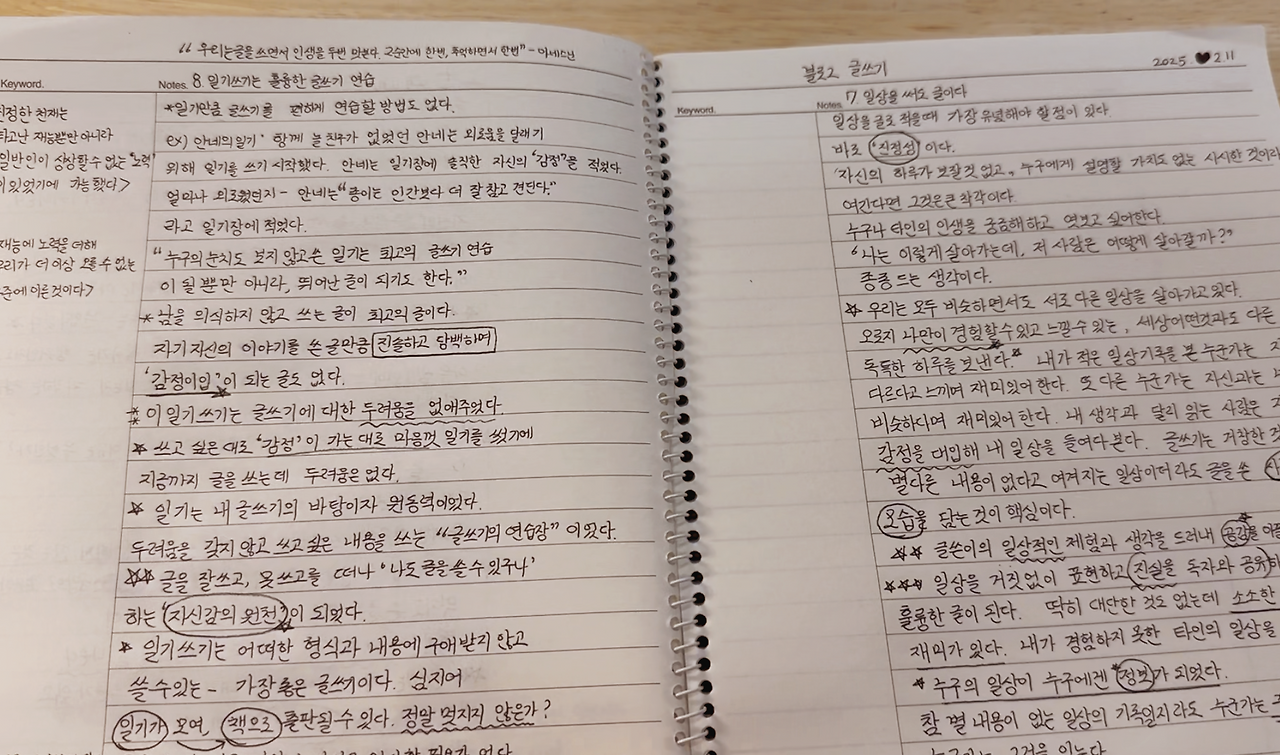 “우리는 글을 쓰면서 인생을 두번 맛본다. 그순간에 한번, 추억하면서 한번” - 아네스닌
Keyword.
Notes. 8. 일기쓰기는 훌륭한 글쓰기 연습
진정한 천재는
타고난 재능뿐만 아니라
일반인이 상상할 수 없는 '노력'
이 있었기에 가능했다>
재능에 노력을 더해
우리가 더이상 오를 수 없는
수준에 이른 것이다>
*일기만큼 글쓰기를 편하게 연습할 방법도 없다.
ex) 안네의일기' 함께 놀 친구가 없었던 안네는 외로움을 달래기
위해 일기를 쓰기 시작했다. 안네는 일기장에 솔직한 자신의 '감정'을 적었다.
얼마나 외로웠던지 - 안네는 “종이는 인간보다 더 잘 참고 견딘다.”
라고 일기장에 적었다.
“누구의 눈치도 보지 않고 쓴 일기는 최고의 글쓰기 연습
이 될 뿐만 아니라, 뛰어난 글이 되기도 한다.”
* 남을 의식하지 않고 쓰는 글이 최고의 글이다.
자기 자신의 이야기를 쓴 글만큼 진솔하고 담백하며
'감정이입'이 되는 글도 없다.
* 이 일기 쓰기는 글쓰기에 대한 두려움을 없애주었다.
* 쓰고 싶은 대로 '감정'이 가는 대로 마음껏 일기를 썼기에
지금까지 글을 쓰는데 두려움은 없다.
* 일기는 내 글쓰기의 바탕이자 원동력이었다.
두려움을 갖지 않고 쓰고 싶은 내용을 쓰는 “글쓰기의 연습장” 이었다.
** 글을 잘쓰고, 못쓰고를 떠나 '나도 글을 쓸 수 있구나'
하는 '자신감의 원천'이 되었다.
* 일기쓰기는 어떠한 형식과 내용에 구애받지 않고
쓸 수 있는 - 가장 좋은 글쓰기이다. 심지어
일기가 모여, 책으로 출판될 수 있다. 정말 멋지지 않은가?
블로그 글쓰기
2025.♥2.11
Keyword.
Notes. 7. 일상을 써도 글이다
일상을 글로 적을때 가장 유념해야 할 점이 있다.
바로 '진정성' 이다.
'자신의 하루가 보잘것 없고, 누구에게 설명할 가치도 없는 사사한 것이라
여긴다면 그것은 큰 착각이다.
누구나 타인의 인생을 궁금해하고 엿보고 싶어한다.
“나는 이렇게 살아가는데, 저 사람은 어떻게 살아갈까?”
종종 드는 생각이다.
* 우리는 모두 비슷하면서도 서로 다른 일상을 살아가고 있다.
오로지 나만이 경험할 수 있고 느낄 수 있는, 세상 어떤것과도 다른
독특한 하루를 보낸다. 내가 적은 일상기록을 본 누군가는
다르다고 느끼며 재미있어 한다. 또 다른 누군가는 자신과는
비슷하다며 재미있어 한다. 내 생각과 달리 읽는 사람은
감정을 대입해 내 일상을 들여다 본다. 글쓰기는 거창한
별다른 내용이 없다고 여겨지는 일상이더라도 글을 쓴
모습을 담는 것이 핵심이다.
** 글쓴이의 일상적인 체험과 생각을 드러내 공감을
*** 일상을 거짓없이 표현하고 진실을 독자와 공유
훌륭한 글이 된다. 딱히 대단한 것도 없는데 소소한
재미가 있다. 내가 경험하지 못한 타인의 일상을
* 누구의 일상이 누구에겐 정보가 되었다.
참 별 내용이 없는 일상의 기록일지라도 누군가는